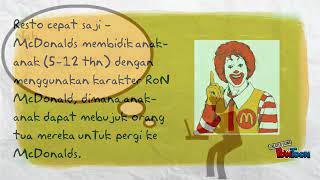 Resto cepat saji -
McDonalds membidik anak-
anak (5-12 thn) dengan
menggunakan karakter RoN
McDonald, dimana anak-
anak dapat mebujuk orang
tua mereka untuk pergi ke
McDonalds.
PowToon